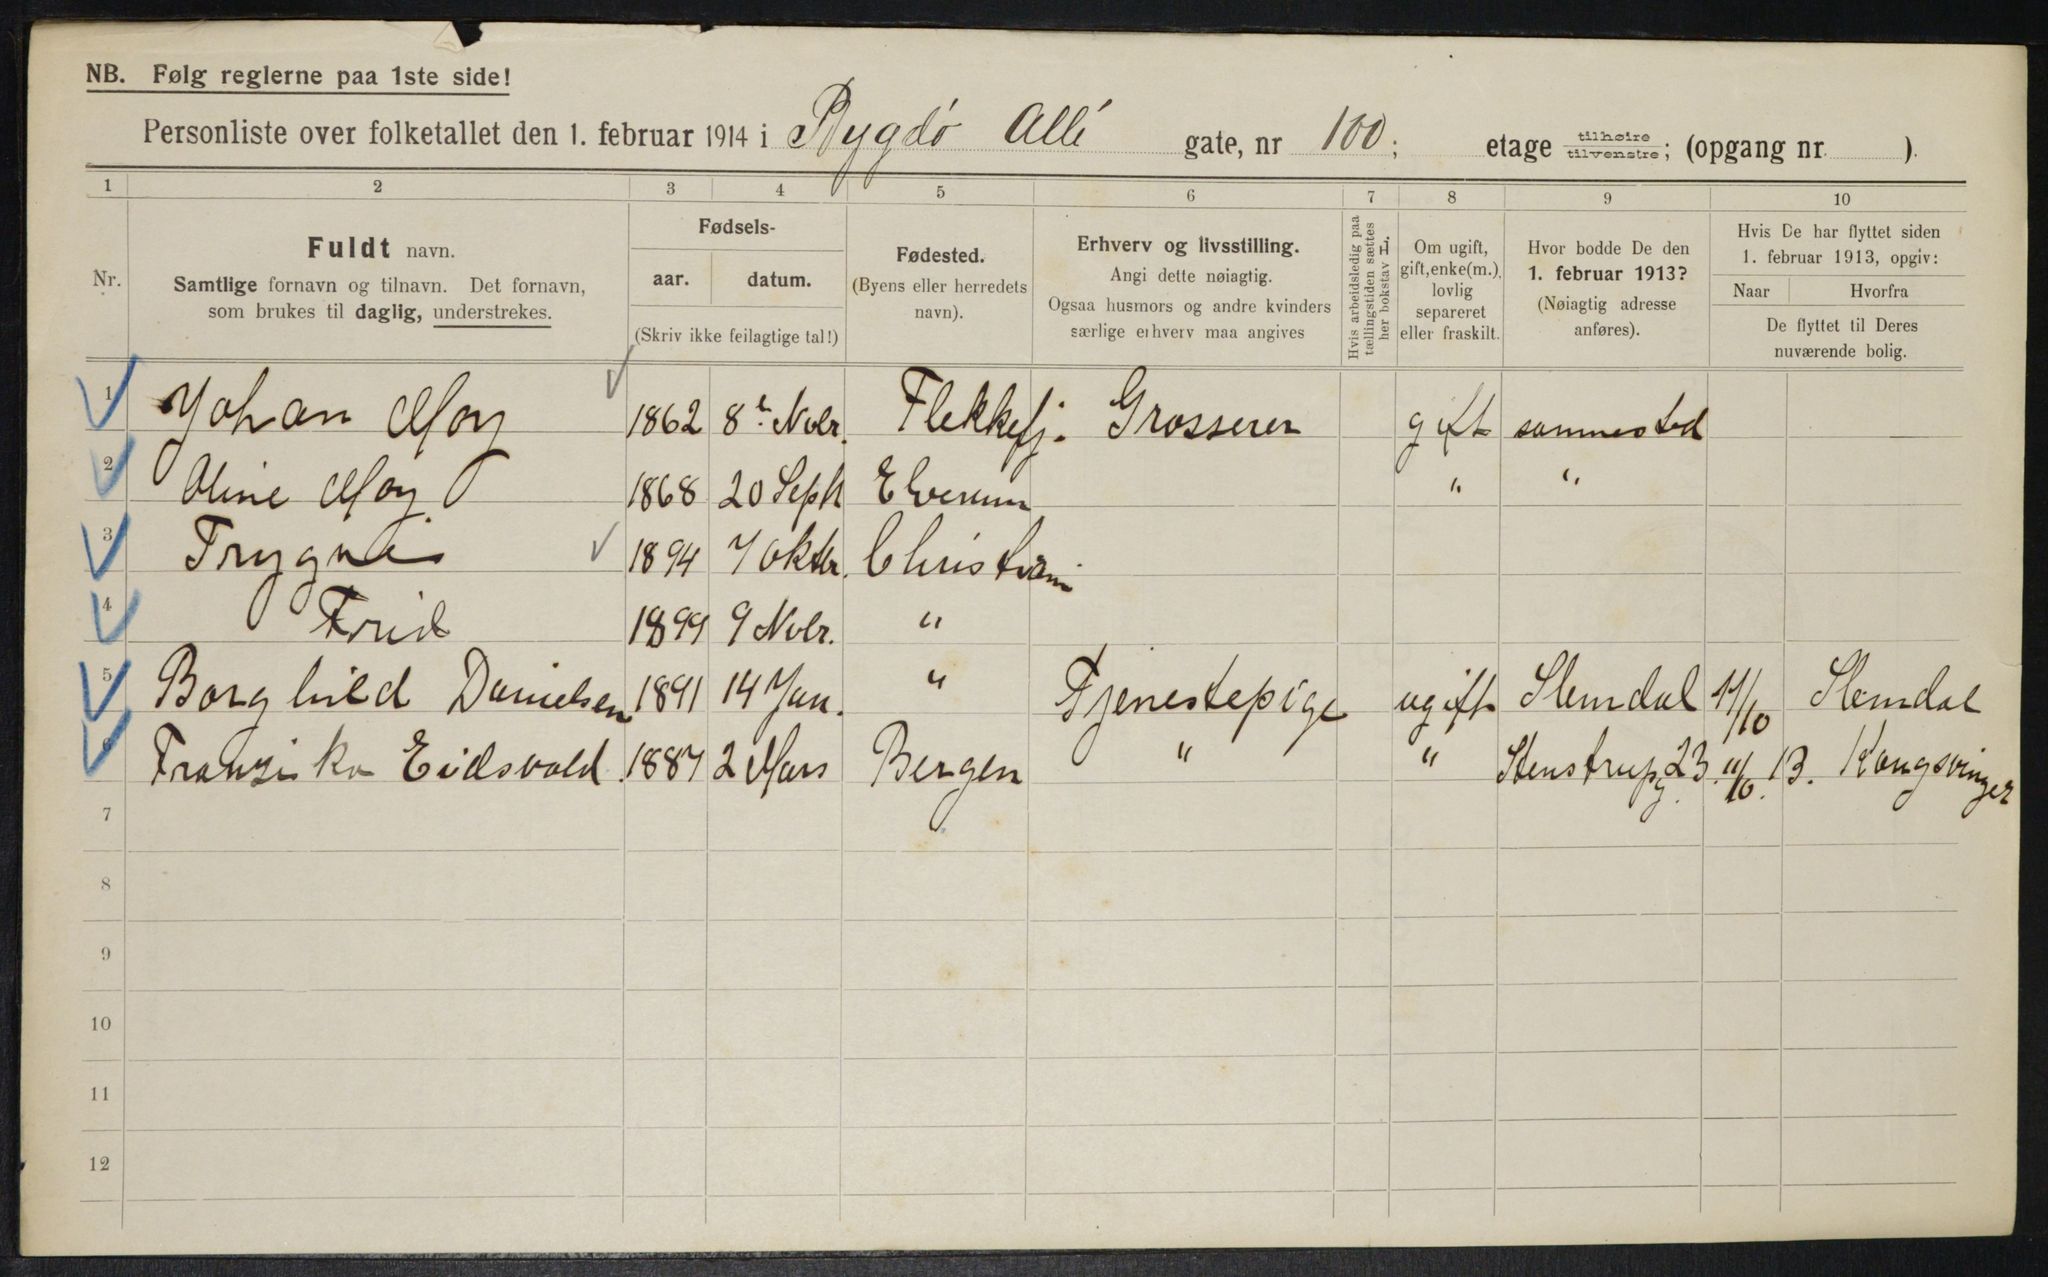 NB. Følg reglerne paa 1ste side!
Personliste over folketallet den 1. februar 1914 i Bygdö Allé gate, nr 100; etage tilhøire tilvenstre; (opgang nr. ).
1 2 3 4 5 6 7 8 9 10
Nr.
Fuldt navn.
Samtlige fornavn og tilnavn. Det fornavn,
som brukes til daglig, understrekes.
Fødsels-
aar. datum.
(Skriv ikke feilagtige tal!)
Fødested.
(Byens eller herredets
navn).
Erhverv og livsstilling.
Angi dette nøiagtig.
Ogsaa husmors og andre kvinders
særlige erhverv maa angives
Hvis arbeidsledig paa
tællingstiden sættes
her bokstav L.
Om ugift,
gift, enke(m.),
lovlig
separeret
eller fraskilt.
Hvor bodde De den
1. februar 1913?
(Nøiagtig adresse
anføres).
Hvis De har flyttet siden
1. februar 1913, opgiv:
Naar Hvorfra
De flyttet til Deres
nuværende bolig.
1 Johan Moy 1862 8de Novbr. Flekkefj. Grosserer gift sammested
2 Oline Moy 1868 20 Septr Elverum " "
3 Trygve 1894 7 Oktbr. Christiania
4 Frid 1899 9 Novbr. "
5 Borghild Danielsen 1891 14 Jan. " Tjenestepige ugift Slemdal 14/10 Slemdal
6 Franziska Eidsvold 1887 2 Mars Bergen " " Stenstrupg. 23. 11/10. 13. Kongsvinger
7
8
9
10
11
12